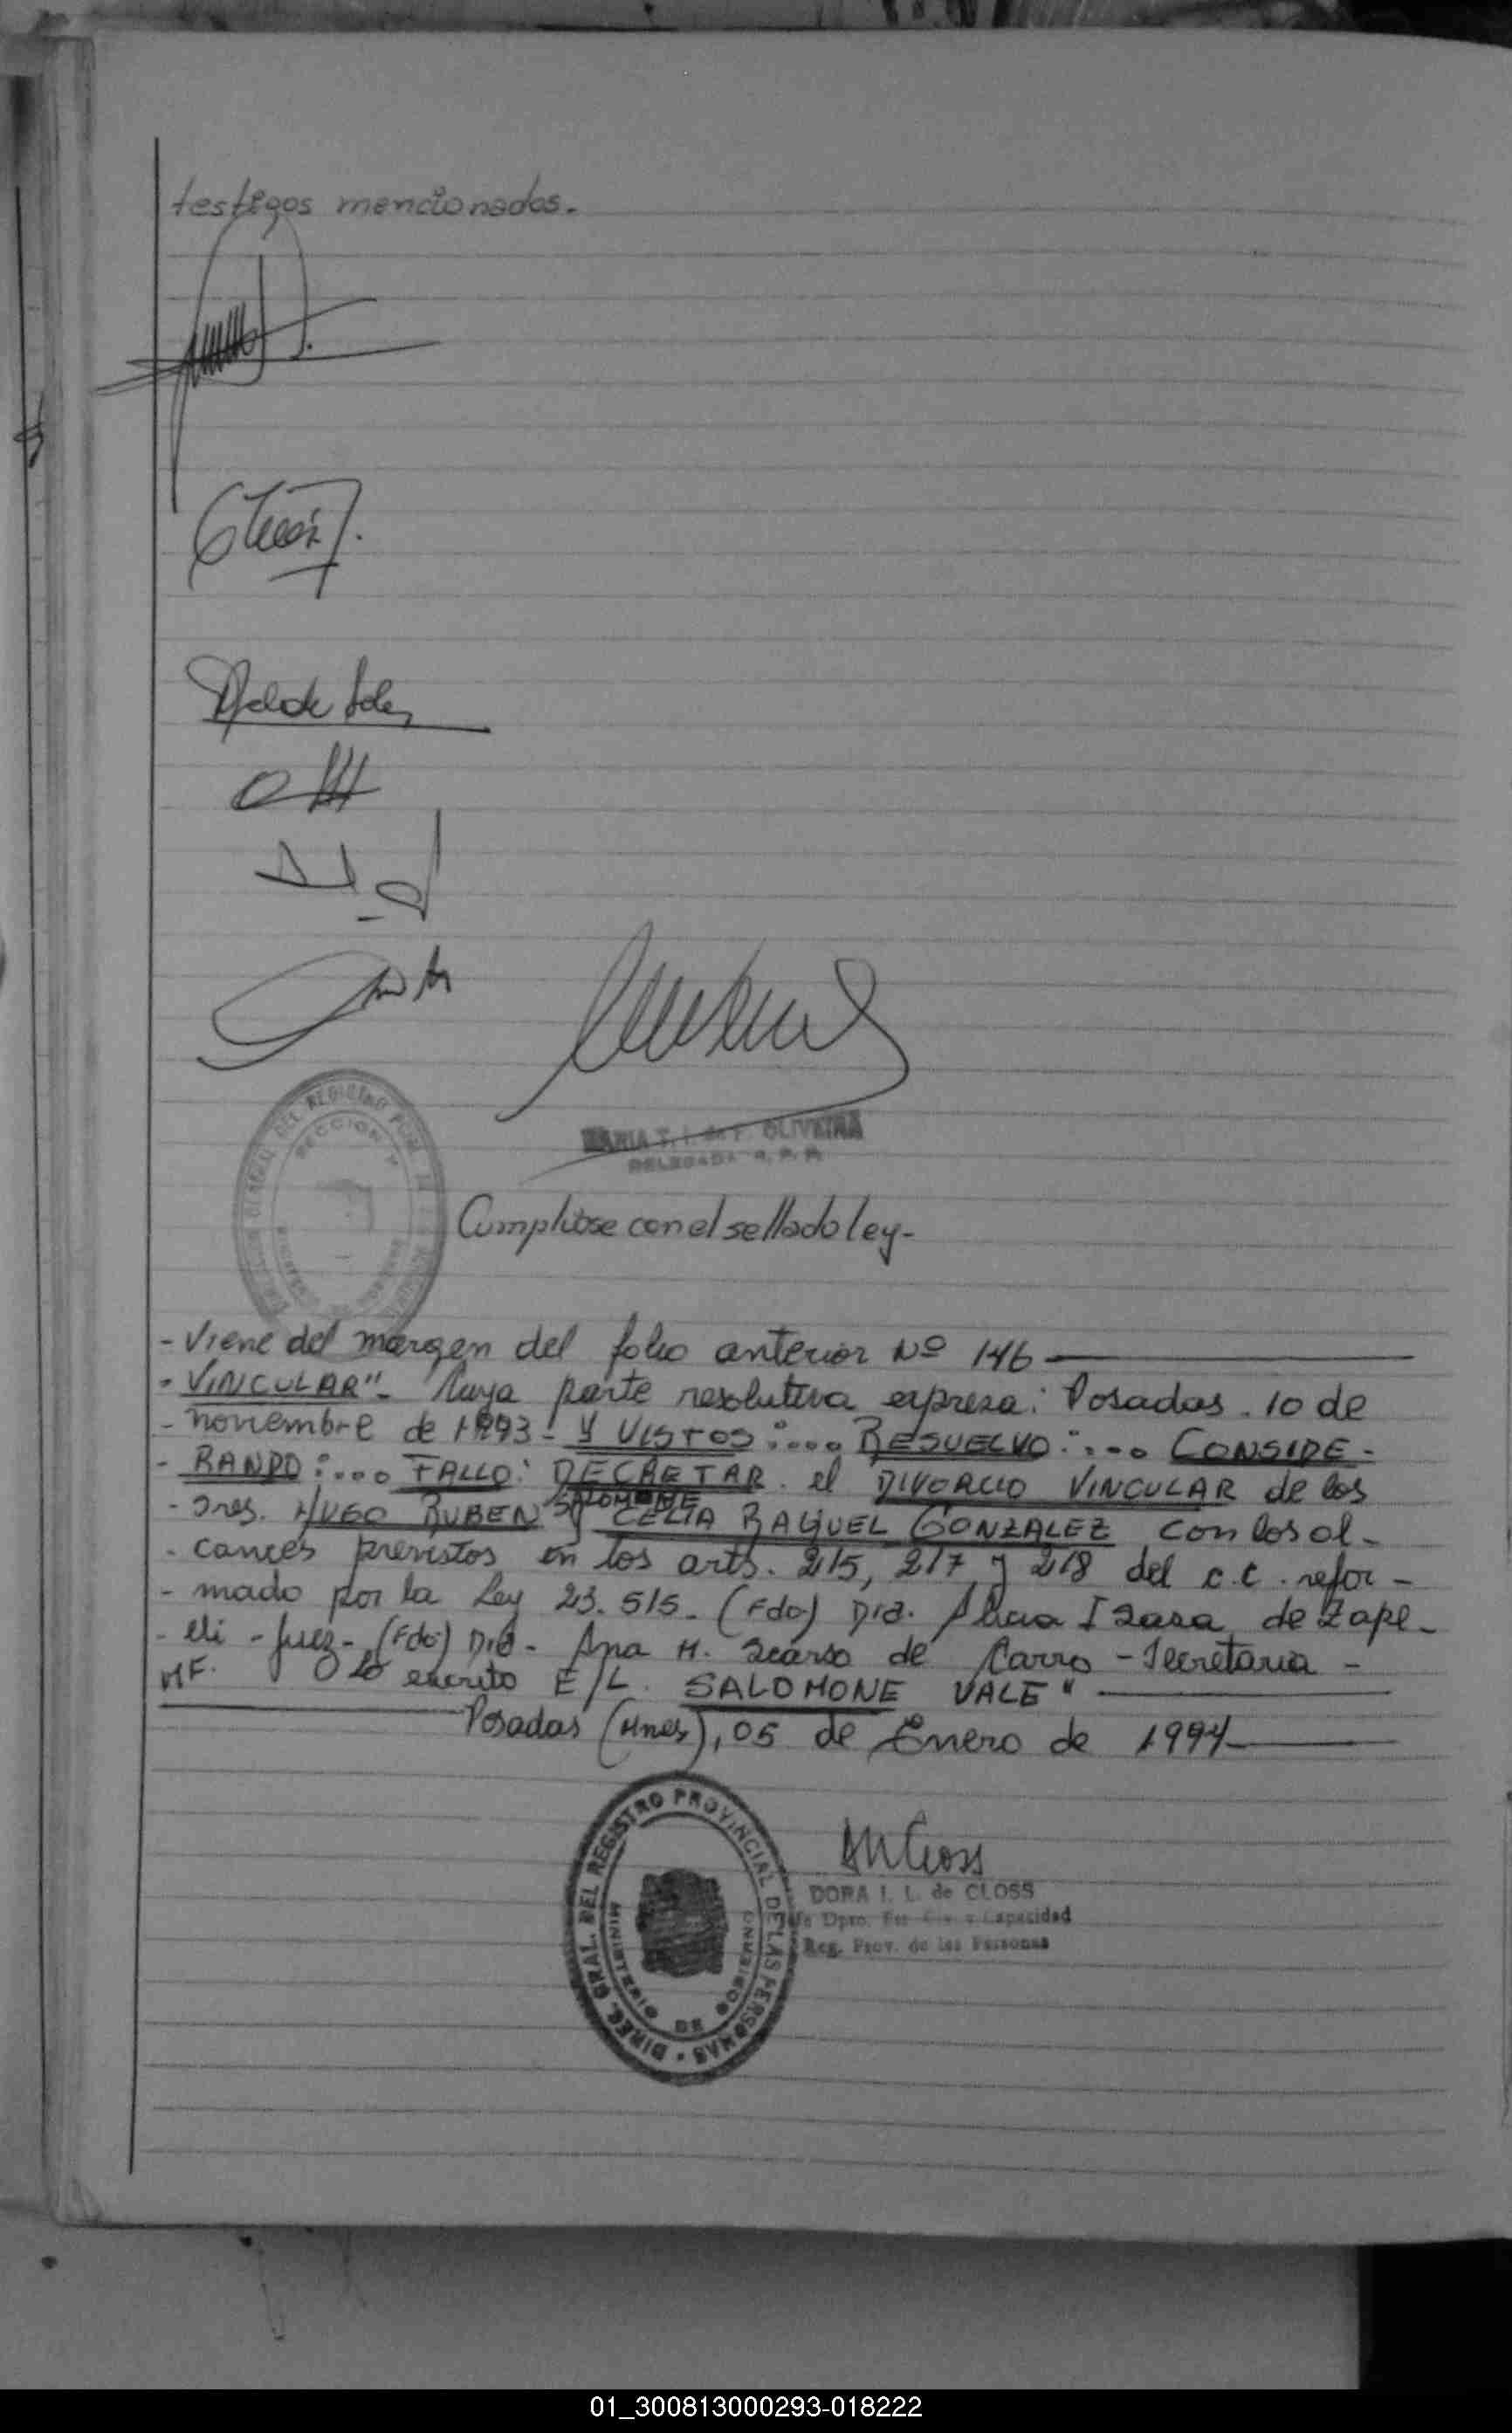 testigos mencionados.-
MARIA T. I. de F. OLIVEIRA
DELEGADA R. P. P.
Cumplióse con el sellado ley-
- Viene del margen del folio anterior Nº 146
- VINCULAR"- Cuya parte resolutiva expresa: Posadas. 10 de
- noviembre de 1993.- Y VISTOS:... RESUELVO:... CONSIDE-
- RANDO:... FALLO: DECRETAR. el DIVORCIO VINCULAR de los
SALOMONE
- Sres. HUGO RUBEN y CELIA RAQUEL GONZALEZ con los al-
- cances previstos en los arts. 215, 217 y 218 del c.c. refor-
- mado por la Ley 23.515.- (Fdo) Dra. Alicia I de Zape-
- lli - Juez- (Fdo) Dra- Ana M. Scarso de Carro - Secretaria -
MF. lo escrito E/L. SALOMONE VALE"
Posadas (Mnes), 05 de Enero de 1994
DIREC. GRAL. DEL REGISTRO PROVINCIAL DE LAS PERSONAS
MINISTERIO DE GOBIERNO
DORA I. L. de CLOSS
Jefe Dpto. Est Civ. y Capacidad
Reg. Prov. de las Personas
01_300813000293-018222